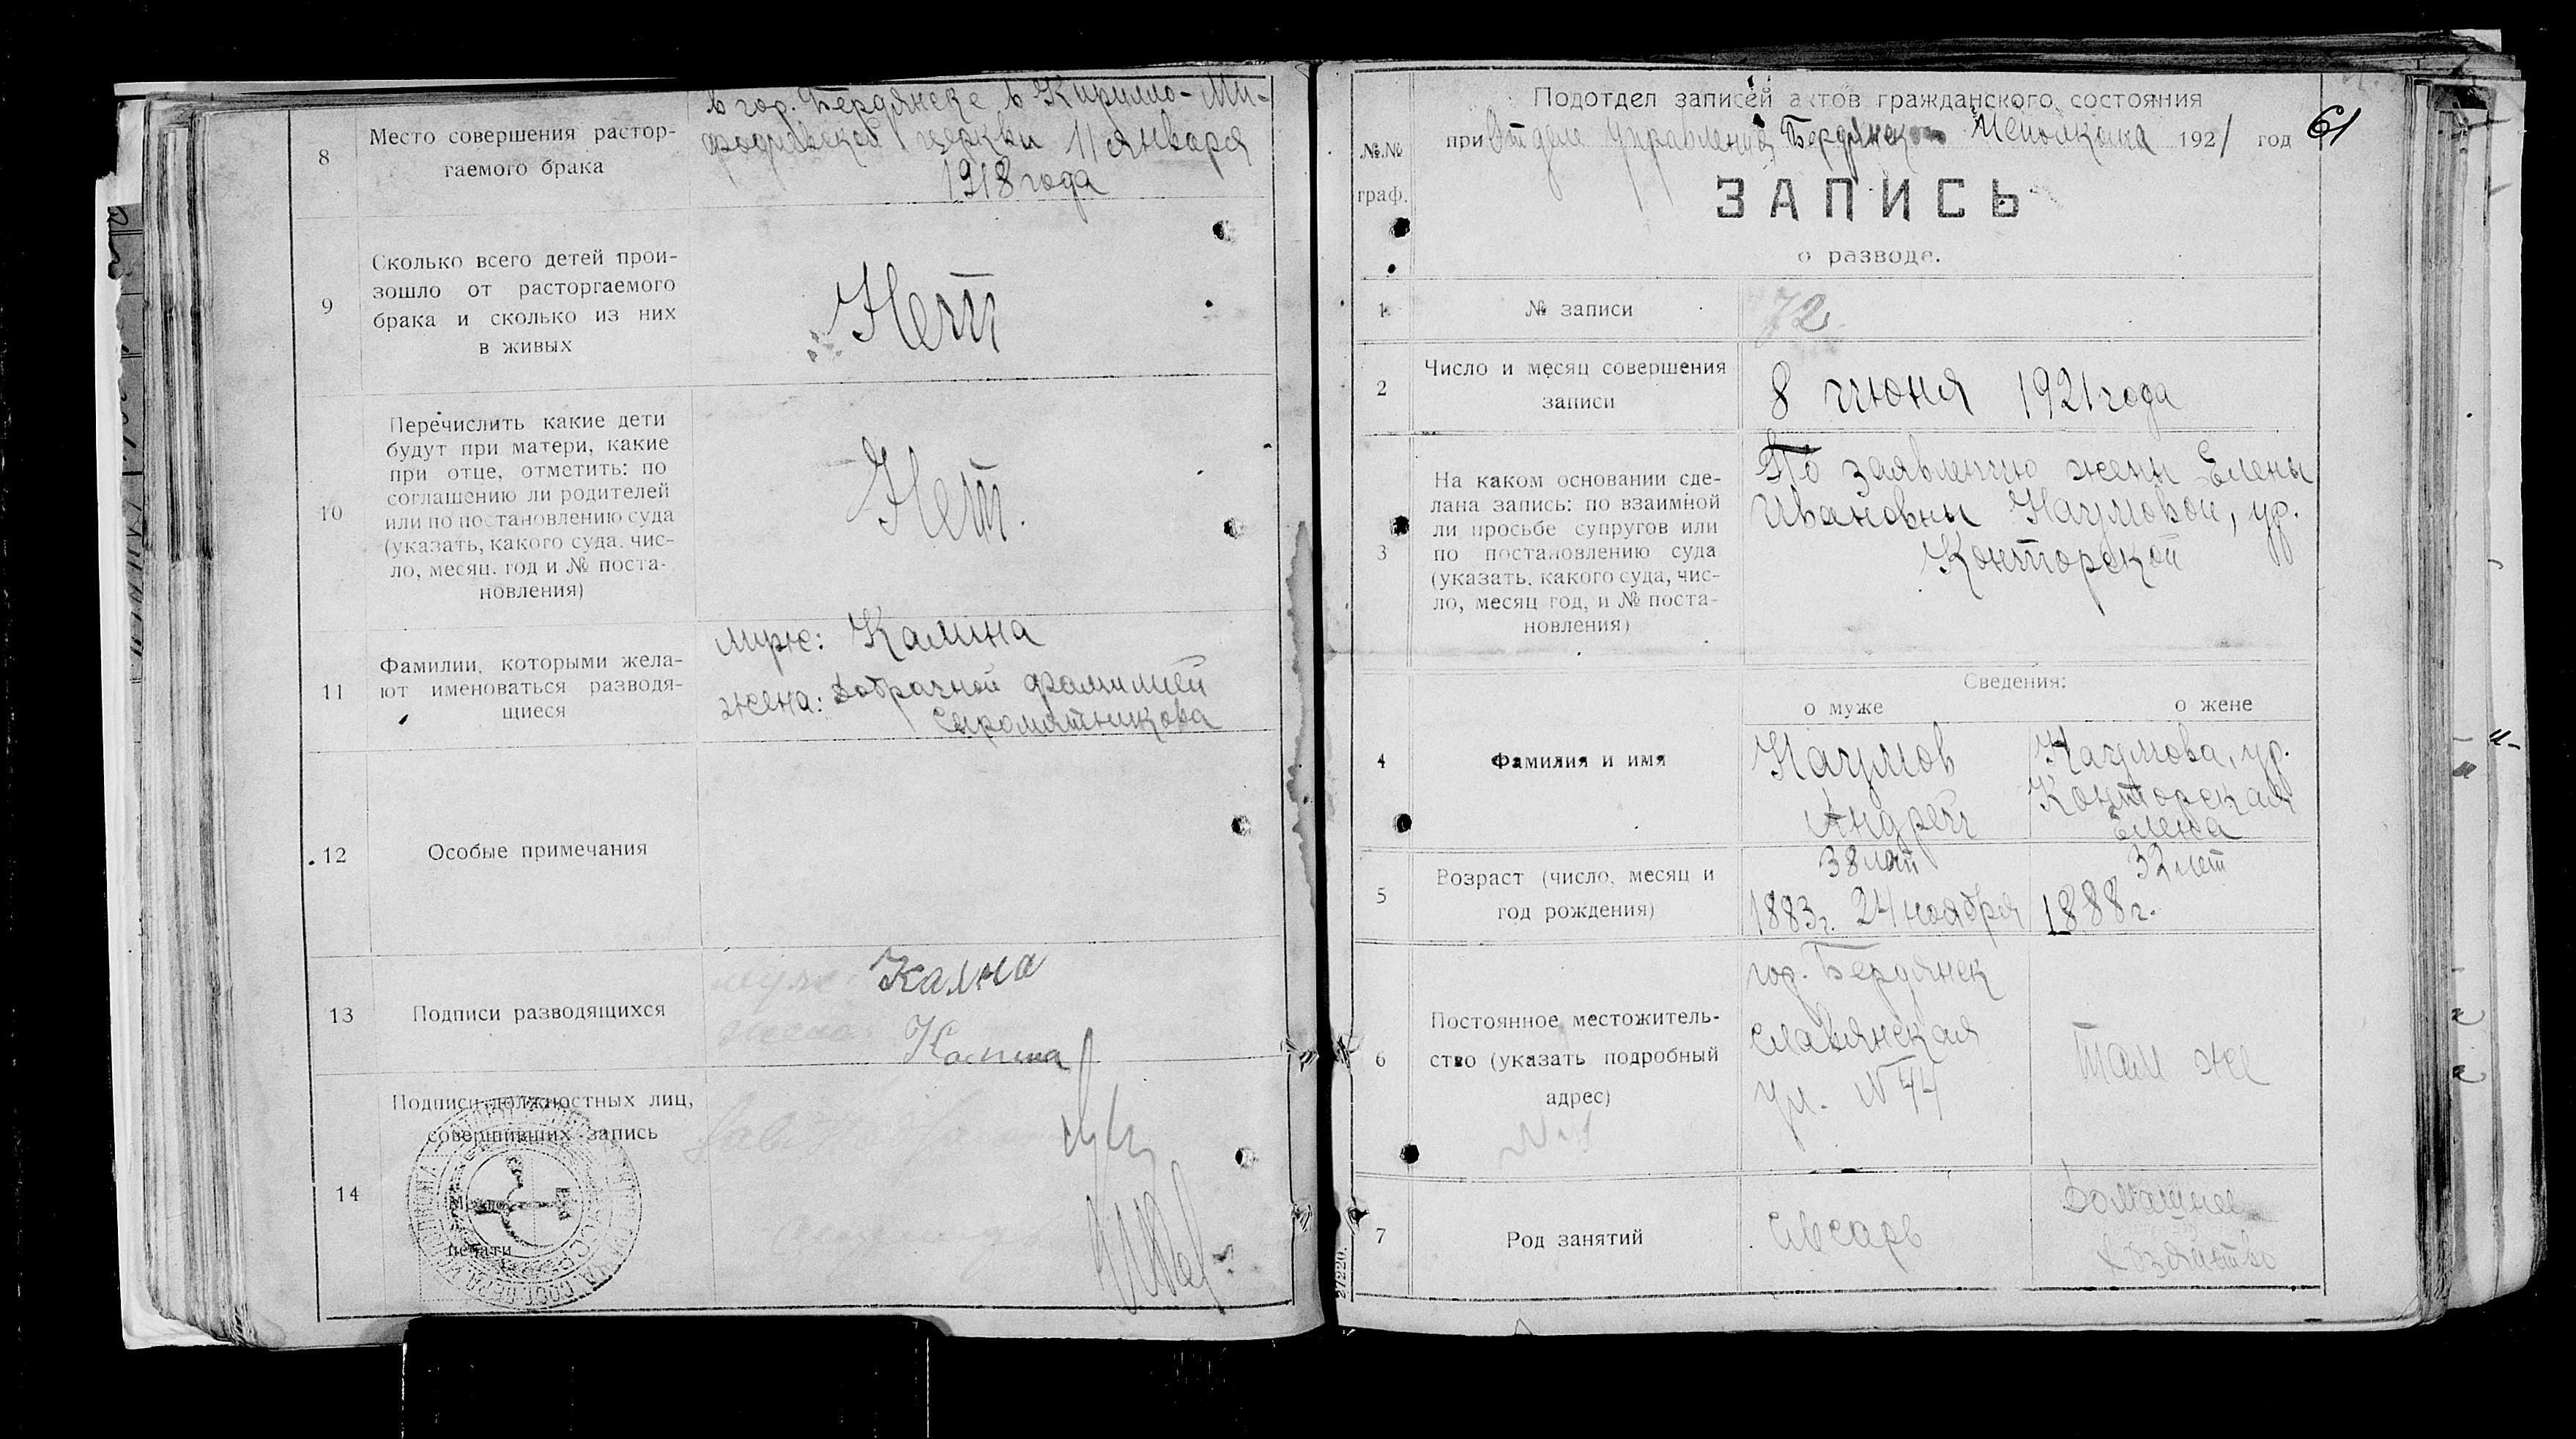 8
Место совершения растор-
гаемого брака
в гор. Бердянске в Кирилло-Ми-
фодиевской церкви 11 января
1918 года
9
Сколько всего детей прои-
зошло от расторгаемого
брака и сколько из них
в живых
Нет
10
Перечислить какие дети
будут при матери, какие
при отце, отметить: по
соглашению ли родителей
или по постановлению суда
(указать, какого суда, чис-
ло, месяц, год и № поста-
новления)
Нет.
11
Фамилии, которыми жела-
ют именоваться разводя-
щиеся
муж: Калина
жена: добрачной фамилией
Сыромятникова
12
Особые примечания
13
Подписи разводящихся
муж: Калина
жена: Калина
14
Подписи должностных лиц,
совершивших запись
Место
печати
Подотдел записей актов гражданского состояния
при Отделе Управления Бердянск Исполкома 1921 год
61
№.№
граф.
ЗАПИСЬ
о разводе.
1
№ записи
72
2
Число и месяц совершения
записи
8 июня 1921 года
3
На каком основании сде-
лана запись: по взаимной
ли просьбе супругов или
по постановлению суда
(указать, какого суда, чис-
ло, месяц год, и № поста-
новления)
По заявлению жены Елены
Ивановны Наумовой, ур.
Конторской
Сведения:
о муже
о жене
4
Фамилия и имя
Наумов
Андрей
Наумова, ур.
Конторская
Елена
5
Возраст (число, месяц и
год рождения)
38 лет
1883г. 24 ноября
32 лет
1888г.
6
Постоянное местожитель-
ство (указать подробный
адрес)
гор. Бердянск
Славянская
ул. N 44
там же
7
Род занятий
Слесарь
Домашнее
хозяйство
27220.